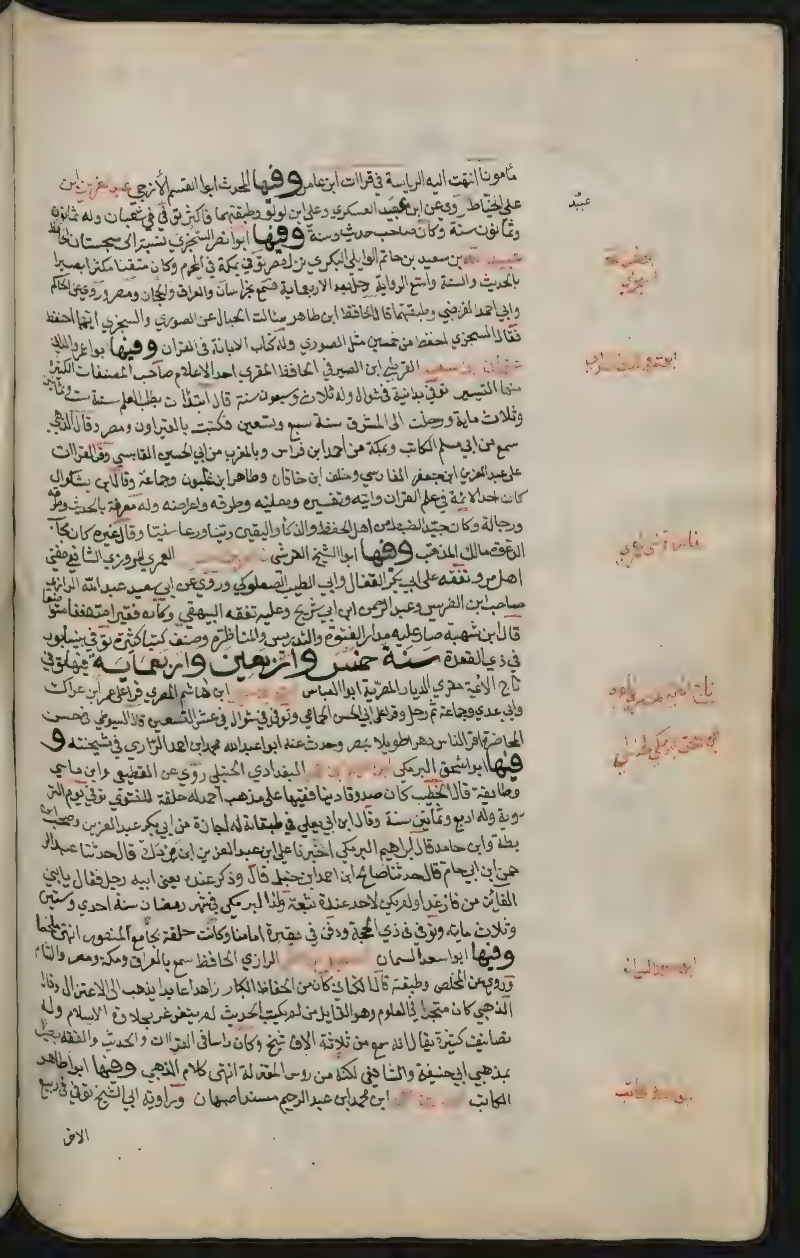 مأمونا انتهت اليه الرياسة في قراات ابن عامر وفيها المحدث ابوا القسم الأزجي عبد العزيز ابن
علي الخياط روى عن ابن عبيد العسكري وعلي ابن لولو وطبقتهما فاكثر توفي في شعبان وله ثمان
عبيد
وثمانون سنة وكان صاحب حديث وسنة وفيها ابوا نصر السجزي نسبة الى سجستان الحافظ
عبيد الله بن سعيد بن حاتم الوايلي البكري نزل مصر توفي بمكة في المحرم وكان متقنا مكثرا بصيرا
بالحديث والسنة واسع الرواية رحل بعد الاربعماية فسمع بخراسان والعراق والحجاز ومصر وروى عن الحاكم
وابي احمد الفرضي وطبقتهما قال الحافظ ابن طاهر سالت الحبال عن الصوري والسجزي ايهما احفظ
فقال السجزي احفظ من خمسين مثل الصوري وله كتاب الابانة في القران وفيها ابوا عمرو الداني
عثمان بن سعيد القرطبي ابن الصيرفي الحافظ المقري احد الاعلام صاحب المصنفات الكثيرة
منها التيسير توفي بدانية في شوال وله ثلاث وسبعون سنة قال ابتدات بطلب العلم سنة ست وثمانين
وثلاث ماية ورحلت الى المشرق سنة سبع وتسعين فكتبت بالقيراون ومصر وقال الذهبي
سمع من ابي مسلم الكاتب وبمكة من احمد ابن فراس وبالمغرب من ابي الحسين القابسي وقرا القراات
على عبد العزيز ابن جعفر الفارسي وخلف ابن خاقان وطاهر ابن غلبون وجماعة وقال ابن بشكوال
كان احد الايمة في علم القران واياته وتفسيره ومعانيه وطرقه واعرابه وله معرفة بالحديث وطرقه
ورجاله وكان جيد الضبط من اهل الحفظ والذكا واليقين دينا ورعا سنيا وقال غيره كان مجاب
الدعوة مالكي المذهب وفيها ابوا الفتح القرشي ناصر بن الحسين العمري المروزي الشافعي مفتي
اهل مرو تفقه على ابي بكر القفال وابي الطيب الصعلوكي وروى عن ابي سعيد عبد الله الرازي
صاحب ابن الضريس وعبد الرحمن ابن ابي شريح وعليه تفقه البيهقي وكان فقيرا متعففا متواضعا
قال ابن شهبة صار عليه مدار الفتوى والتدريس والمناظرة وصنف كتبا كثيرة توفي بنيسابور
في ذي القعدة سنة خمس واربعين واربعماية فيها توفي
تاج الايمة مقري الديار المصرية ابوا العباس ابن هاشم المصري قرا على عمر ابن عراك
وابي عدي وجماعة ثم رحل وقرا على ابي الحسن الحمامي وتوفي في شوال في عشر التسعين قال السيوطي في حسن
المحاضرة اقرا الناس دهرا طويلا بمصر وحدث عنه ابوا عبد الله محمد ابن احمد الرازي في مشيخته و
فيها ابوا اسحق البرمكي البغدادي الحنبلي روى عن القطيعي وابن ماسي
وطايفة قال الخطيب كان صدوقا دينا فقيها على مذهب احمد له حلقة للفتوى توفي يوم التر
وية وله اربع وثمانين سنة وقال ابن ابي يعلي في طبقاته له اجازة من ابي بكر عبد العزيز وصحب ابن
بطة وابن حامد قال ابراهيم البرمكي اخبرنا علي ابن عبد العزيز ابن مردك قال حدثنا عبد الر
حمن ابن ابي حاتم قال حدثنا صالح ابن احمد ابن حنبل قال وذكر عنده يعني ابيه رجل فقال يا بني
الفايز من فاز غدا ولم يكن لاحد عنده تبعة ولد البرمكي في شهر رمضان سنة احدي وستين
وثلاث مايه وتوفي في ذي الحجة ودفن في مقبرة امامنا وكانت حلقة بجامع المنصور انتهى ملخصا
وفيها ابوا سعد السمان الرازي الحافظ سمع بالعراق ومكة ومصر والشام
وروى عن المخلص وطبقته قال الكتاني كان من الحفاظ الكبار زاهدا عابدا يذهب الى الاعتزال وقال
الذهبي كان متبحرا في العلوم وهو القايل من لم يكتب الحديث لم يتغرغر بحلاوة الاسلام وله
تصانيف كثيرة يقال انه سمع من ثلاثة الاف شيخ وكان راسا في القراات والحديث والفقه بصيرا
بمذهبي ابي حنيفة والشافعي لكنه من روس المعتزلة انتهى كلام الذهبي وفيها ابوا طاهر
الكاتب ابن محمد ابن عبد الرحيم مسند اصبهان وراوية ابي الشيخ توفي في ربيع
الاخر